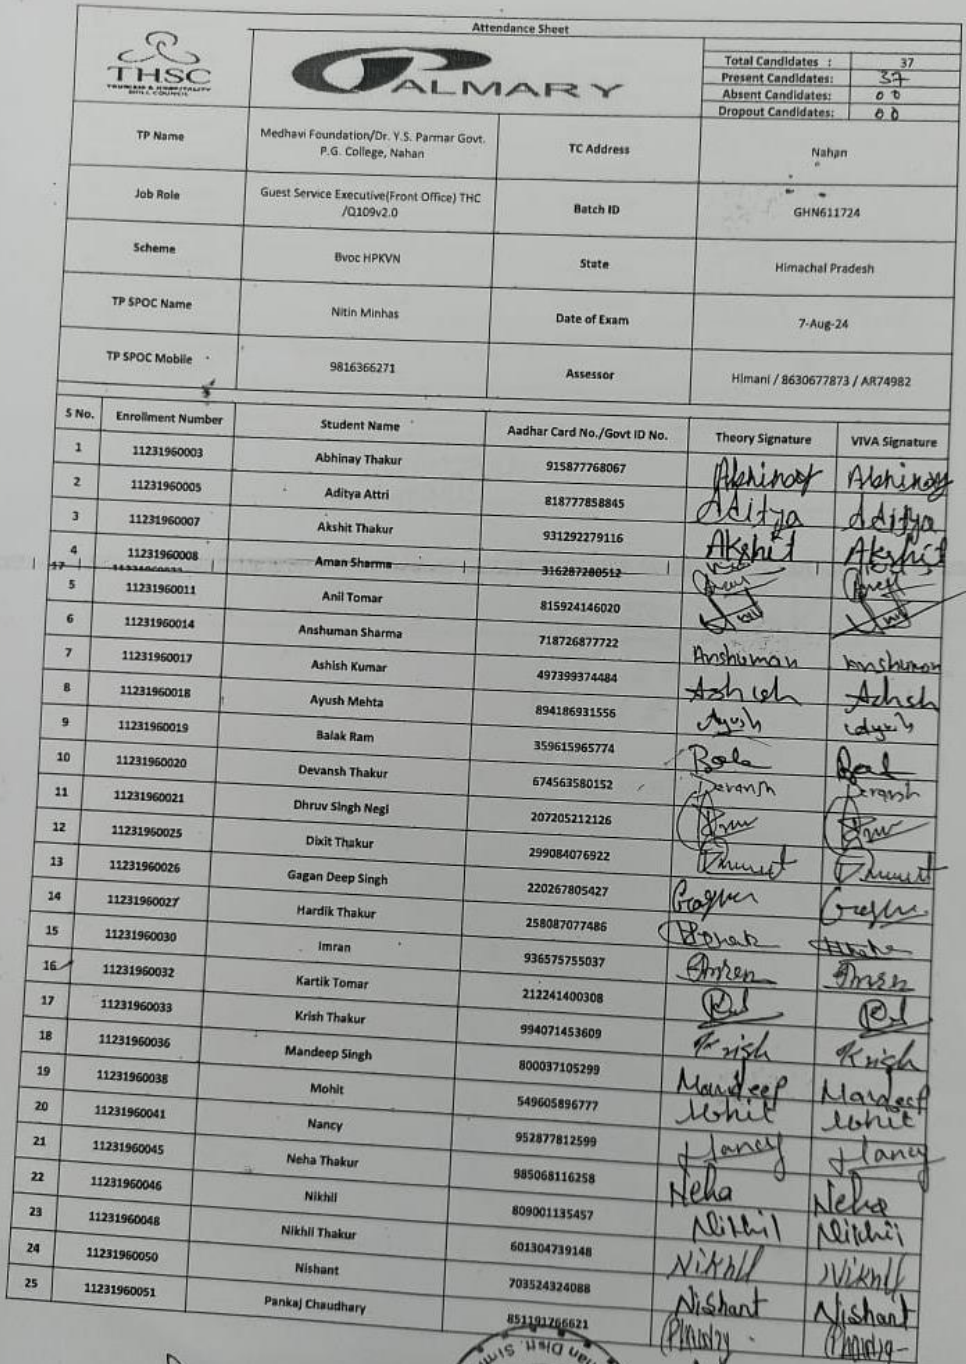 Attendance Sheet
THSC
TOURISM & HOSPITALITY
SKILL COUNCIL
PALMARY
Total Candidates : 37
Present Candidates: 37
Absent Candidates: 00
Dropout Candidates: 00
TP Name Medhavi Foundation/Dr. Y.S. Parmar Govt. P.G. College, Nahan TC Address Nahan
Job Role Guest Service Executive(Front Office) THC /Q109v2.0 Batch ID GHN611724
Scheme Bvoc HPKVN State Himachal Pradesh
TP SPOC Name Nitin Minhas Date of Exam 7-Aug-24
TP SPOC Mobile 9816366271 Assessor Himani / 8630677873 / AR74982
S No. Enrollment Number Student Name Aadhar Card No./Govt ID No. Theory Signature VIVA Signature
1 11231960003 Abhinay Thakur 915877768067 Abhinay Abhinay
2 11231960005 Aditya Attri 818777858845 Aditya Aditya
3 11231960007 Akshit Thakur 931292279116 Akshit Akshit
4 11231960008 Aman Sharma 316287280512
5 11231960011 Anil Tomar 815924146020
6 11231960014 Anshuman Sharma 718726877722 Anshuman Anshuman
7 11231960017 Ashish Kumar 497399374484 Ashish Ashish
8 11231960018 Ayush Mehta 894186931556 Ayush Ayush
9 11231960019 Balak Ram 359615965774
10 11231960020 Devansh Thakur 674563580152 Devansh Devansh
11 11231960021 Dhruv Singh Negi 207205212126
12 11231960025 Dixit Thakur 299084076922
13 11231960026 Gagan Deep Singh 220267805427
14 11231960027 Hardik Thakur 258087077486
15 11231960030 Imran 936575755037 Imran Imran
16 11231960032 Kartik Tomar 212241400308
17 11231960033 Krish Thakur 994071453609 Krish Krish
18 11231960036 Mandeep Singh 800037105299 Mandeep Mandeep
19 11231960038 Mohit 549605896777 Mohit Mohit
20 11231960041 Nancy 952877812599 Nancy Nancy
21 11231960045 Neha Thakur 985068116258 Neha Neha
22 11231960046 Nikhil 809001135457 Nikhil Nikhil
23 11231960048 Nikhil Thakur 601304739148 Nikhil Nikhil
24 11231960050 Nishant 703524324088 Nishant Nishant
25 11231960051 Pankaj Chaudhary 851191766621